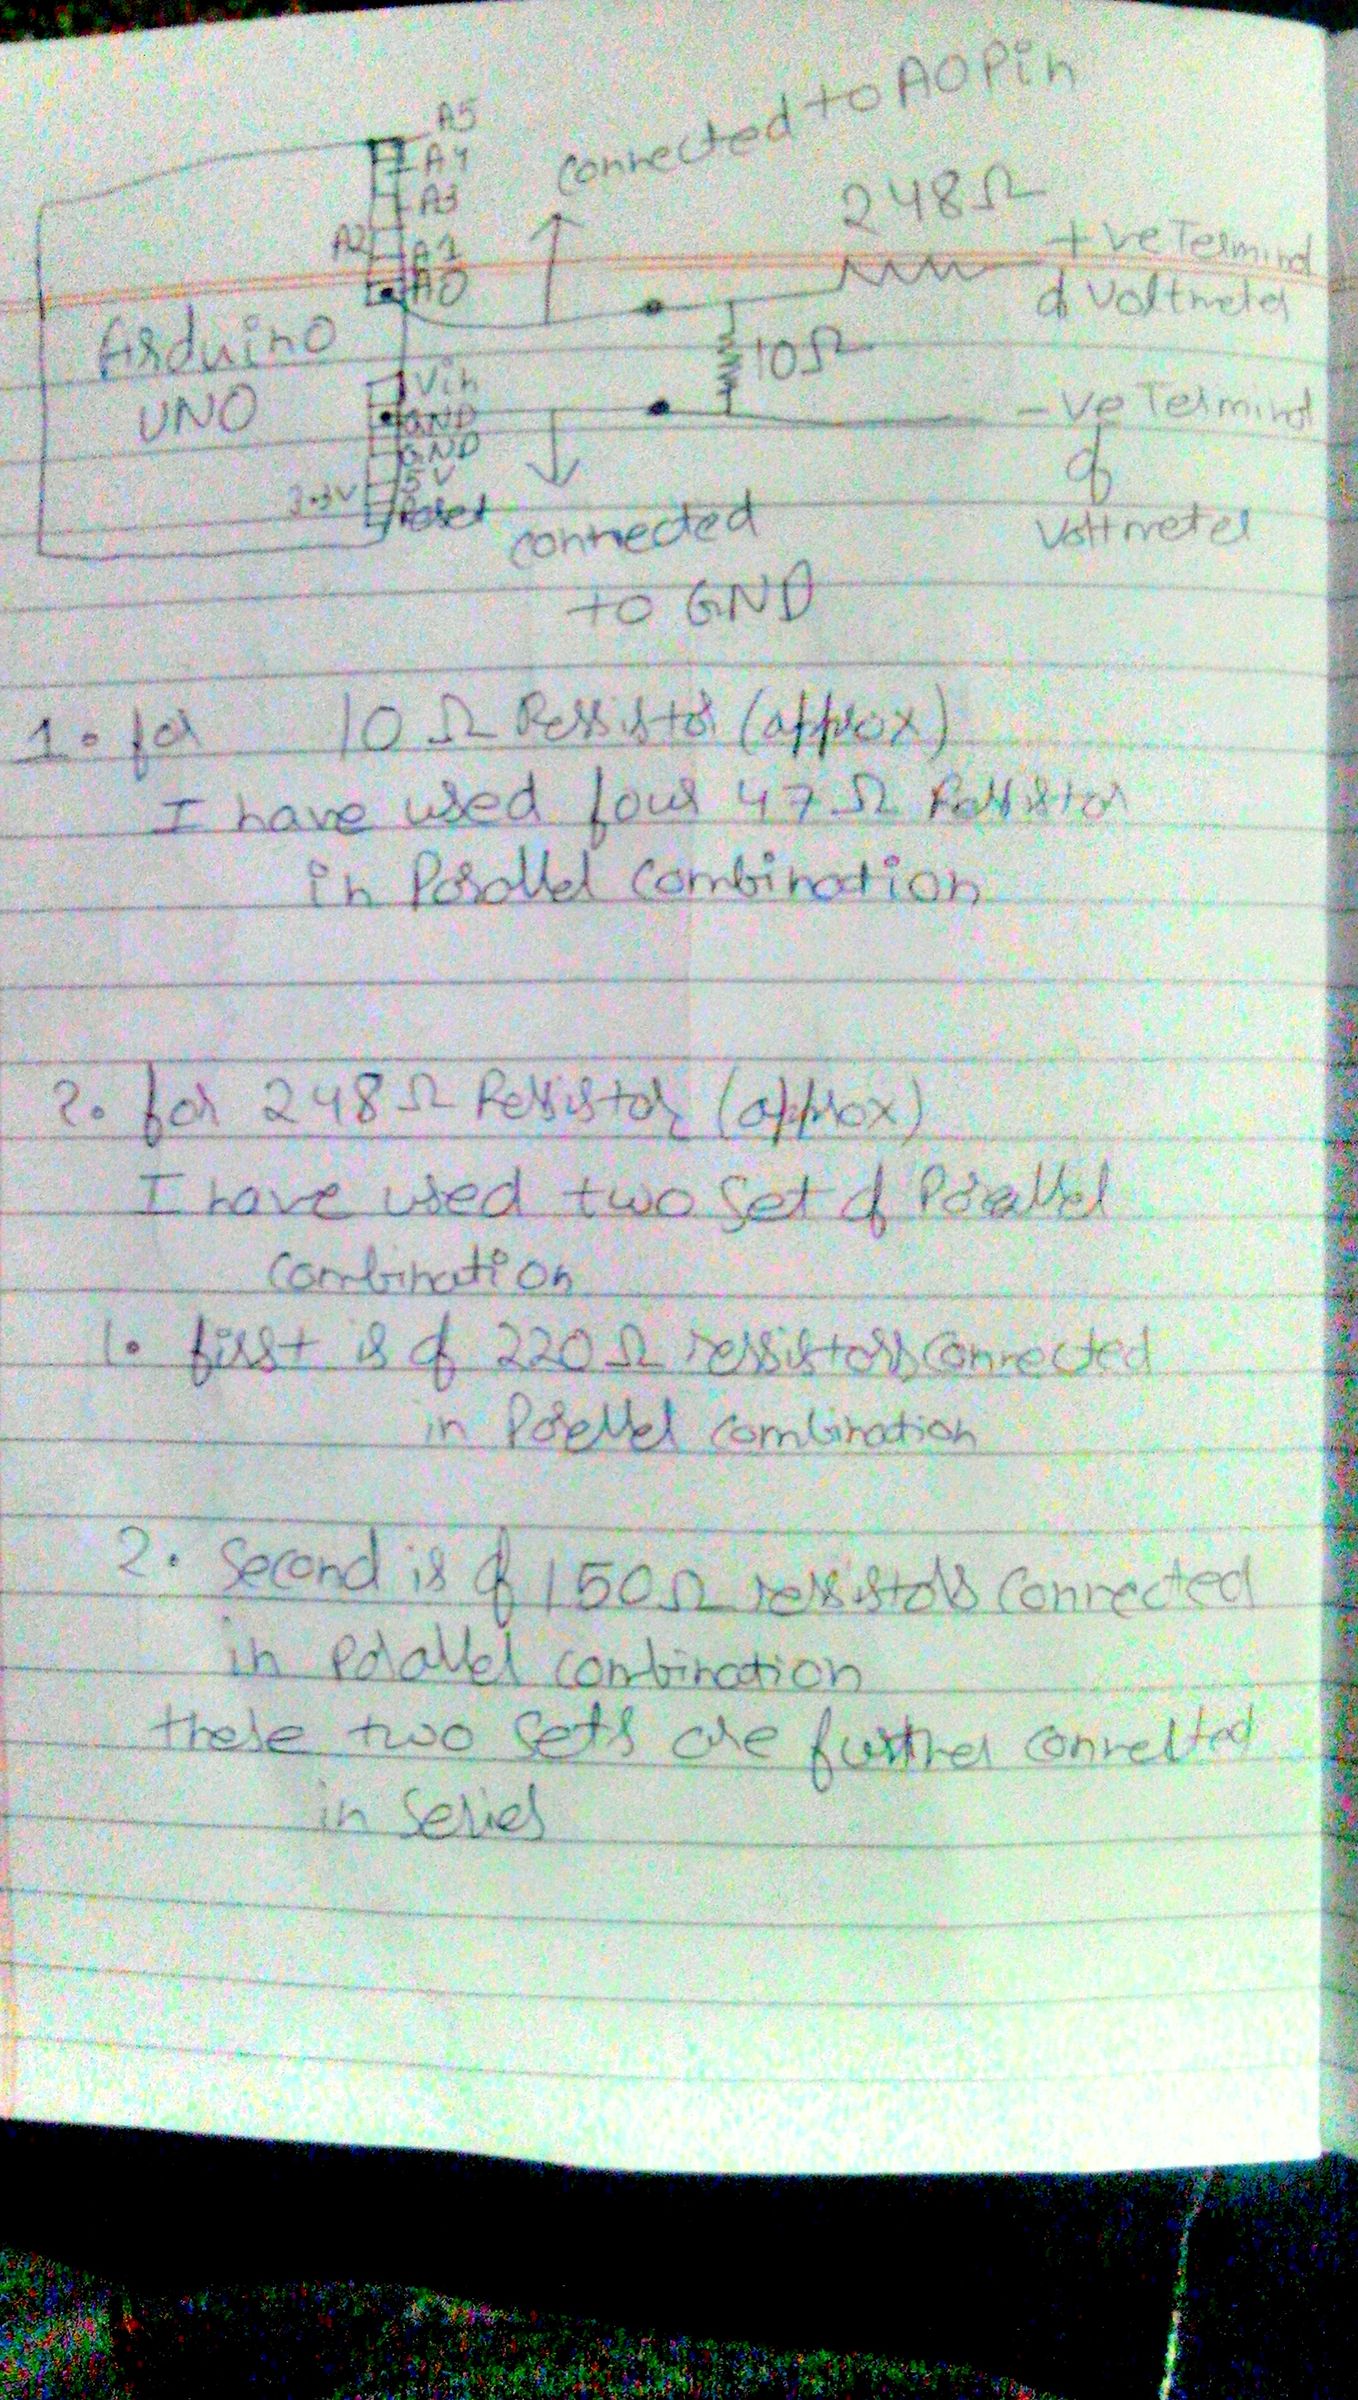 connected to A0 Pin
A5
A4
A3
A2
A1
A0
248Ω
+ve Terminal
of Voltmeter
Arduino
UNO
10Ω
Vin
GND
GND
5V
3.3V
Reset
-ve Terminal
of
Voltmeter
connected
to GND
1. for 10Ω Ressistor (approx)
I have used four 47Ω Ressistor
in Parallel combination
2. for 248Ω Ressistor (approx)
I have used two set of Parallel
combination
1. first is of 220Ω ressistors connected
in Parellel combination
2. Second is of 150Ω ressistors connected
in parallel combination
these two sets are further connected
in series